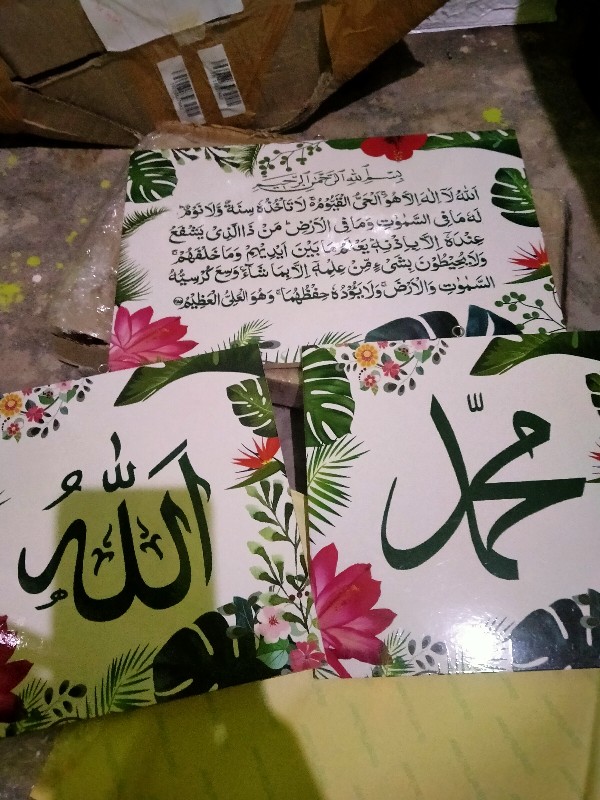 بِسْمِ اللهِ الرَّحْمٰنِ الرَّحِيْمِ
اَللهُ لَآ اِلٰهَ اِلَّا هُوَ ۚ اَلْحَيُّ الْقَيُّوْمُ ۚ لَا تَأْخُذُهٗ سِنَةٌ وَّلَا نَوْمٌ ۗ
لَهٗ مَا فِى السَّمٰوٰتِ وَمَا فِى الْاَرْضِ ۗ مَنْ ذَا الَّذِيْ يَشْفَعُ
عِنْدَهٗٓ اِلَّا بِاِذْنِهٖ ۗ يَعْلَمُ مَا بَيْنَ اَيْدِيْهِمْ وَمَا خَلْفَهُمْ ۚ
وَلَا يُحِيْطُوْنَ بِشَيْءٍ مِّنْ عِلْمِهٖٓ اِلَّا بِمَا شَآءَ ۚ وَسِعَ كُرْسِيُّهُ
السَّمٰوٰتِ وَالْاَرْضَ ۚ وَلَا يَـُٔوْدُهٗ حِفْظُهُمَا ۚ وَهُوَ الْعَلِيُّ الْعَظِيْمُ
اللهُ
محمّد